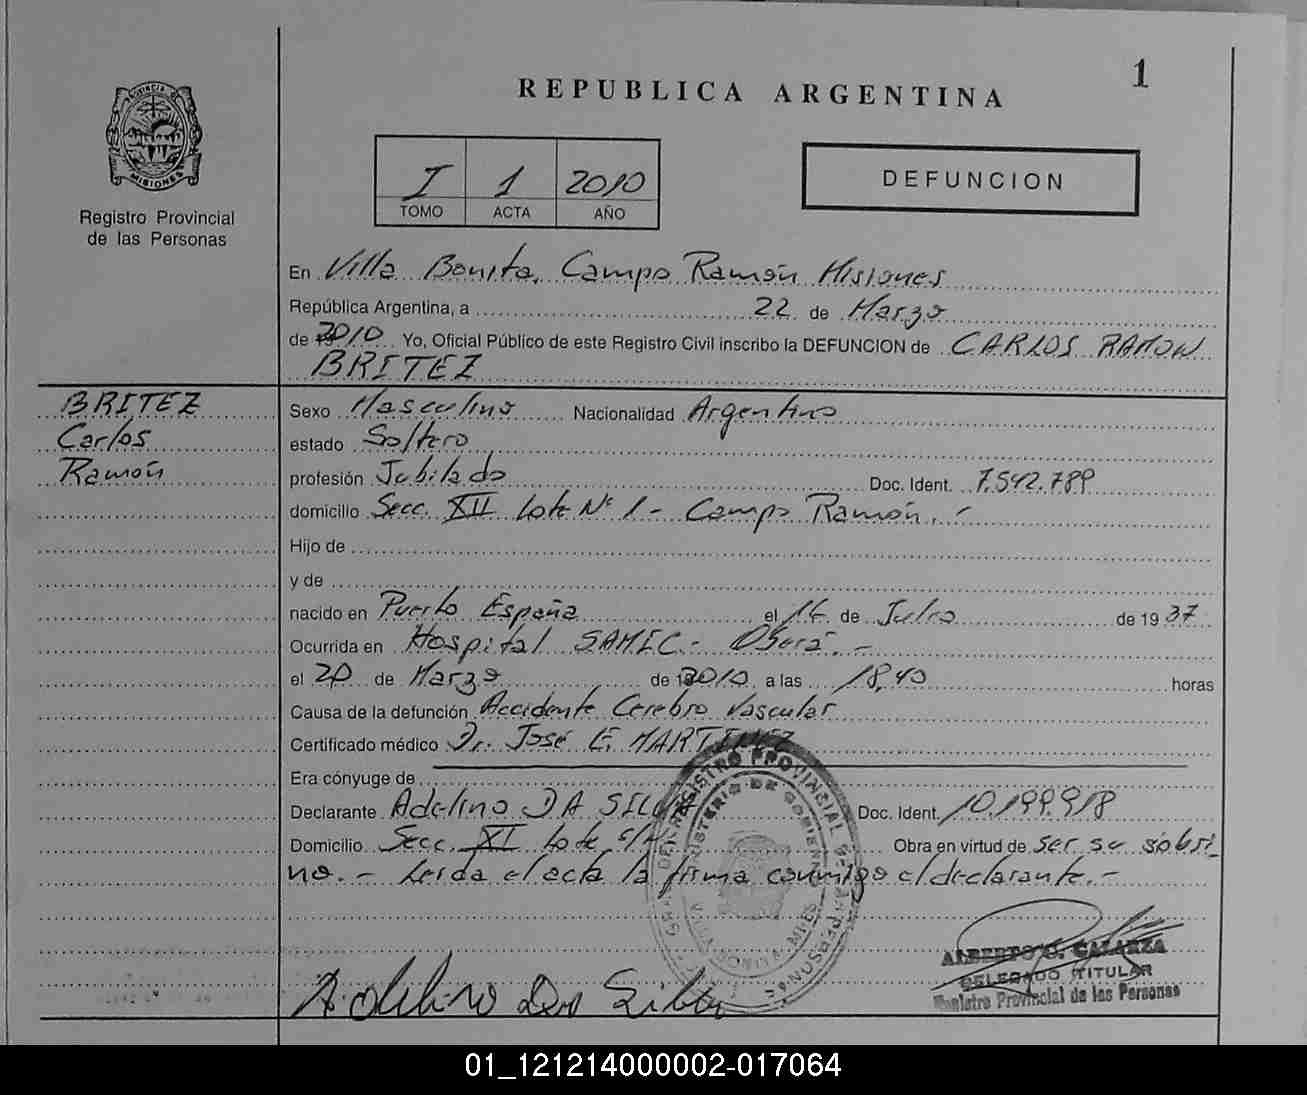 1
REPUBLICA ARGENTINA
PROVINCIA DE
MISIONES
I 1 2010
TOMO ACTA AÑO
DEFUNCION
Registro Provincial
de las Personas
En Villa Bonita, Campo Ramón Misiones
República Argentina, a 22 de Marzo
de 2010 Yo, Oficial Público de este Registro Civil inscribo la DEFUNCION de CARLOS RAMON
BRITEZ
BRITEZ
Carlos
Ramón
Sexo Masculino Nacionalidad Argentino
estado Soltero
profesión Jubilado Doc. Ident. 7.542.789
domicilio Secc. XII Lote Nº 1 - Campo Ramón. -
Hijo de
y de
nacido en Puerto España el de Julio de 1937
Ocurrida en Hospital SAMIC. - Oberá. -
el 20 de Marzo de 2010 a las 18,40 horas
Causa de la defunción Accidente Cerebro Vascular
Certificado médico Dr. José E. MARTINEZ
Era cónyuge de
Declarante Adelino DA SILVA Doc. Ident. 10.199.918
Domicilio Secc. XI Lote Obra en virtud de ser su sobri_
no. - Leida el acta la firma conmigo el declarante. -
REGISTRO PROVINCIAL DE LAS PERSONAS
MINISTERIO DE GOBIERNO
VILLA BONITA MNES
Adelino Da Silva
ALBERTO G. GALARZA
DELEGADO TITULAR
Registro Provincial de las Personas
01_121214000002-017064